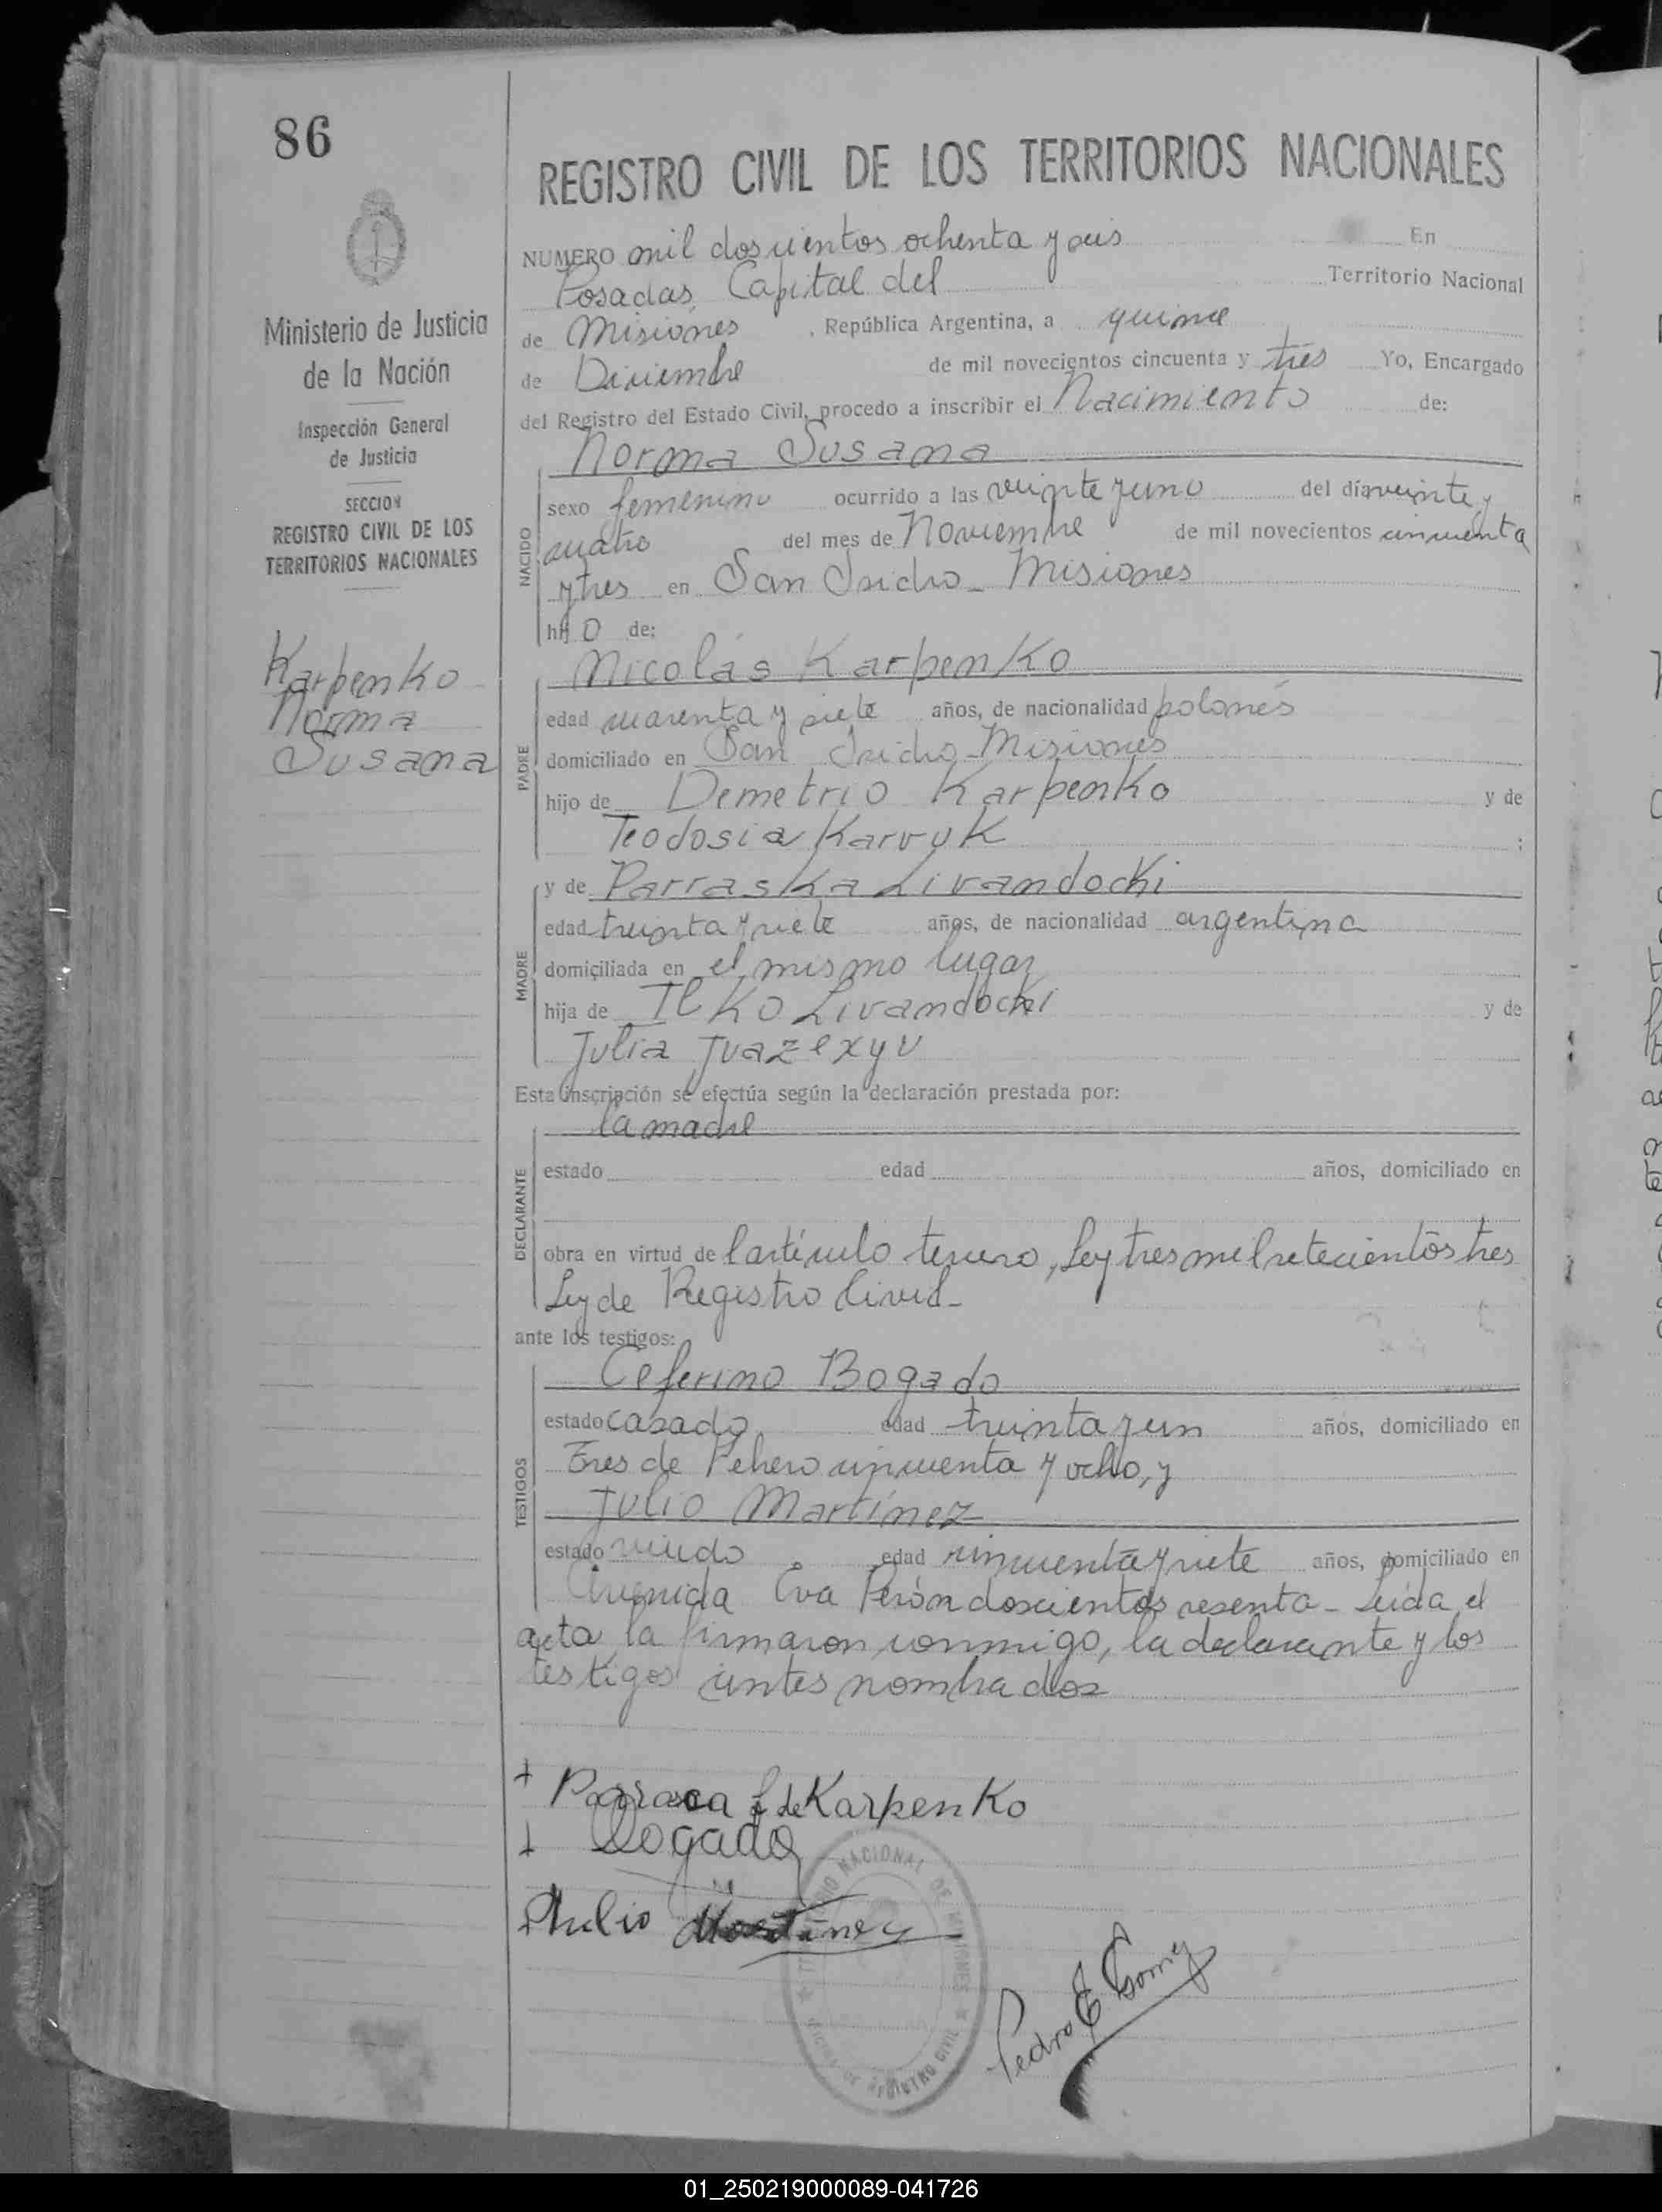 86
REGISTRO CIVIL DE LOS TERRITORIOS NACIONALES
Ministerio de Justicia
de la Nación
Inspección General
de Justicia
SECCION
REGISTRO CIVIL DE LOS
TERRITORIOS NACIONALES
Karpenko
Norma
Susana
NUMERO mil doscientos ochenta y seis En
Posadas, Capital del Territorio Nacional
de Misiones, República Argentina, a quince
de Diciembre de mil novecientos cincuenta y tres Yo, Encargado
del Registro del Estado Civil, procedo a inscribir el Nacimiento de:
NACIDO
Norma Susana
sexo femenino ocurrido a las veinte y uno del día veinte y
cuatro del mes de Noviembre de mil novecientos cincuenta
y tres en San Isidro - Misiones
hijo de:
PADRE
Nicolás Karpenko
edad cuarenta y siete años, de nacionalidad polonés
domiciliado en San Isidro - Misiones
hijo de Demetrio Karpenko y de
Teodosia Karvuk ;
MADRE
y de Parraska Livandocki
edad treinta y siete años, de nacionalidad argentina
domiciliada en el mismo lugar
hija de Ilko Livandocki y de
Julia Juazexyu
Esta inscripción se efectúa según la declaración prestada por:
DECLARANTE
la madre
estado edad años, domiciliado en
obra en virtud de l artículo tercero, Ley tres mil setecientos tres
Ley de Registro Civil -
ante los testigos:
TESTIGOS
Ceferino Bogado
estado casado edad treinta y un años, domiciliado en
Tres de Febrero cincuenta y ocho, y
Julio Martínez
estado viudo edad cincuenta y siete años, domiciliado en
Avenida Eva Perón doscientos sesenta - Leída el
acta la firmaron conmigo, la declarante y los
testigos antes nombrados
+ Parrasca L de Karpenko
Bogado
Julio Martinez
TERRITORIO NACIONAL DE MISIONES
OFICINA DE REGISTRO CIVIL
Pedro E Gomez
01_250219000089-041726